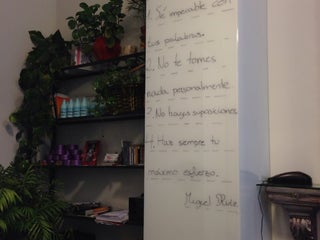 1. Sé impecable con
tus palabras.
2. No te tomes
nada personalmente
3. No hagas suposiciones.
4. Haz siempre tu
máximo esfuerzo.
Miguel Ruiz